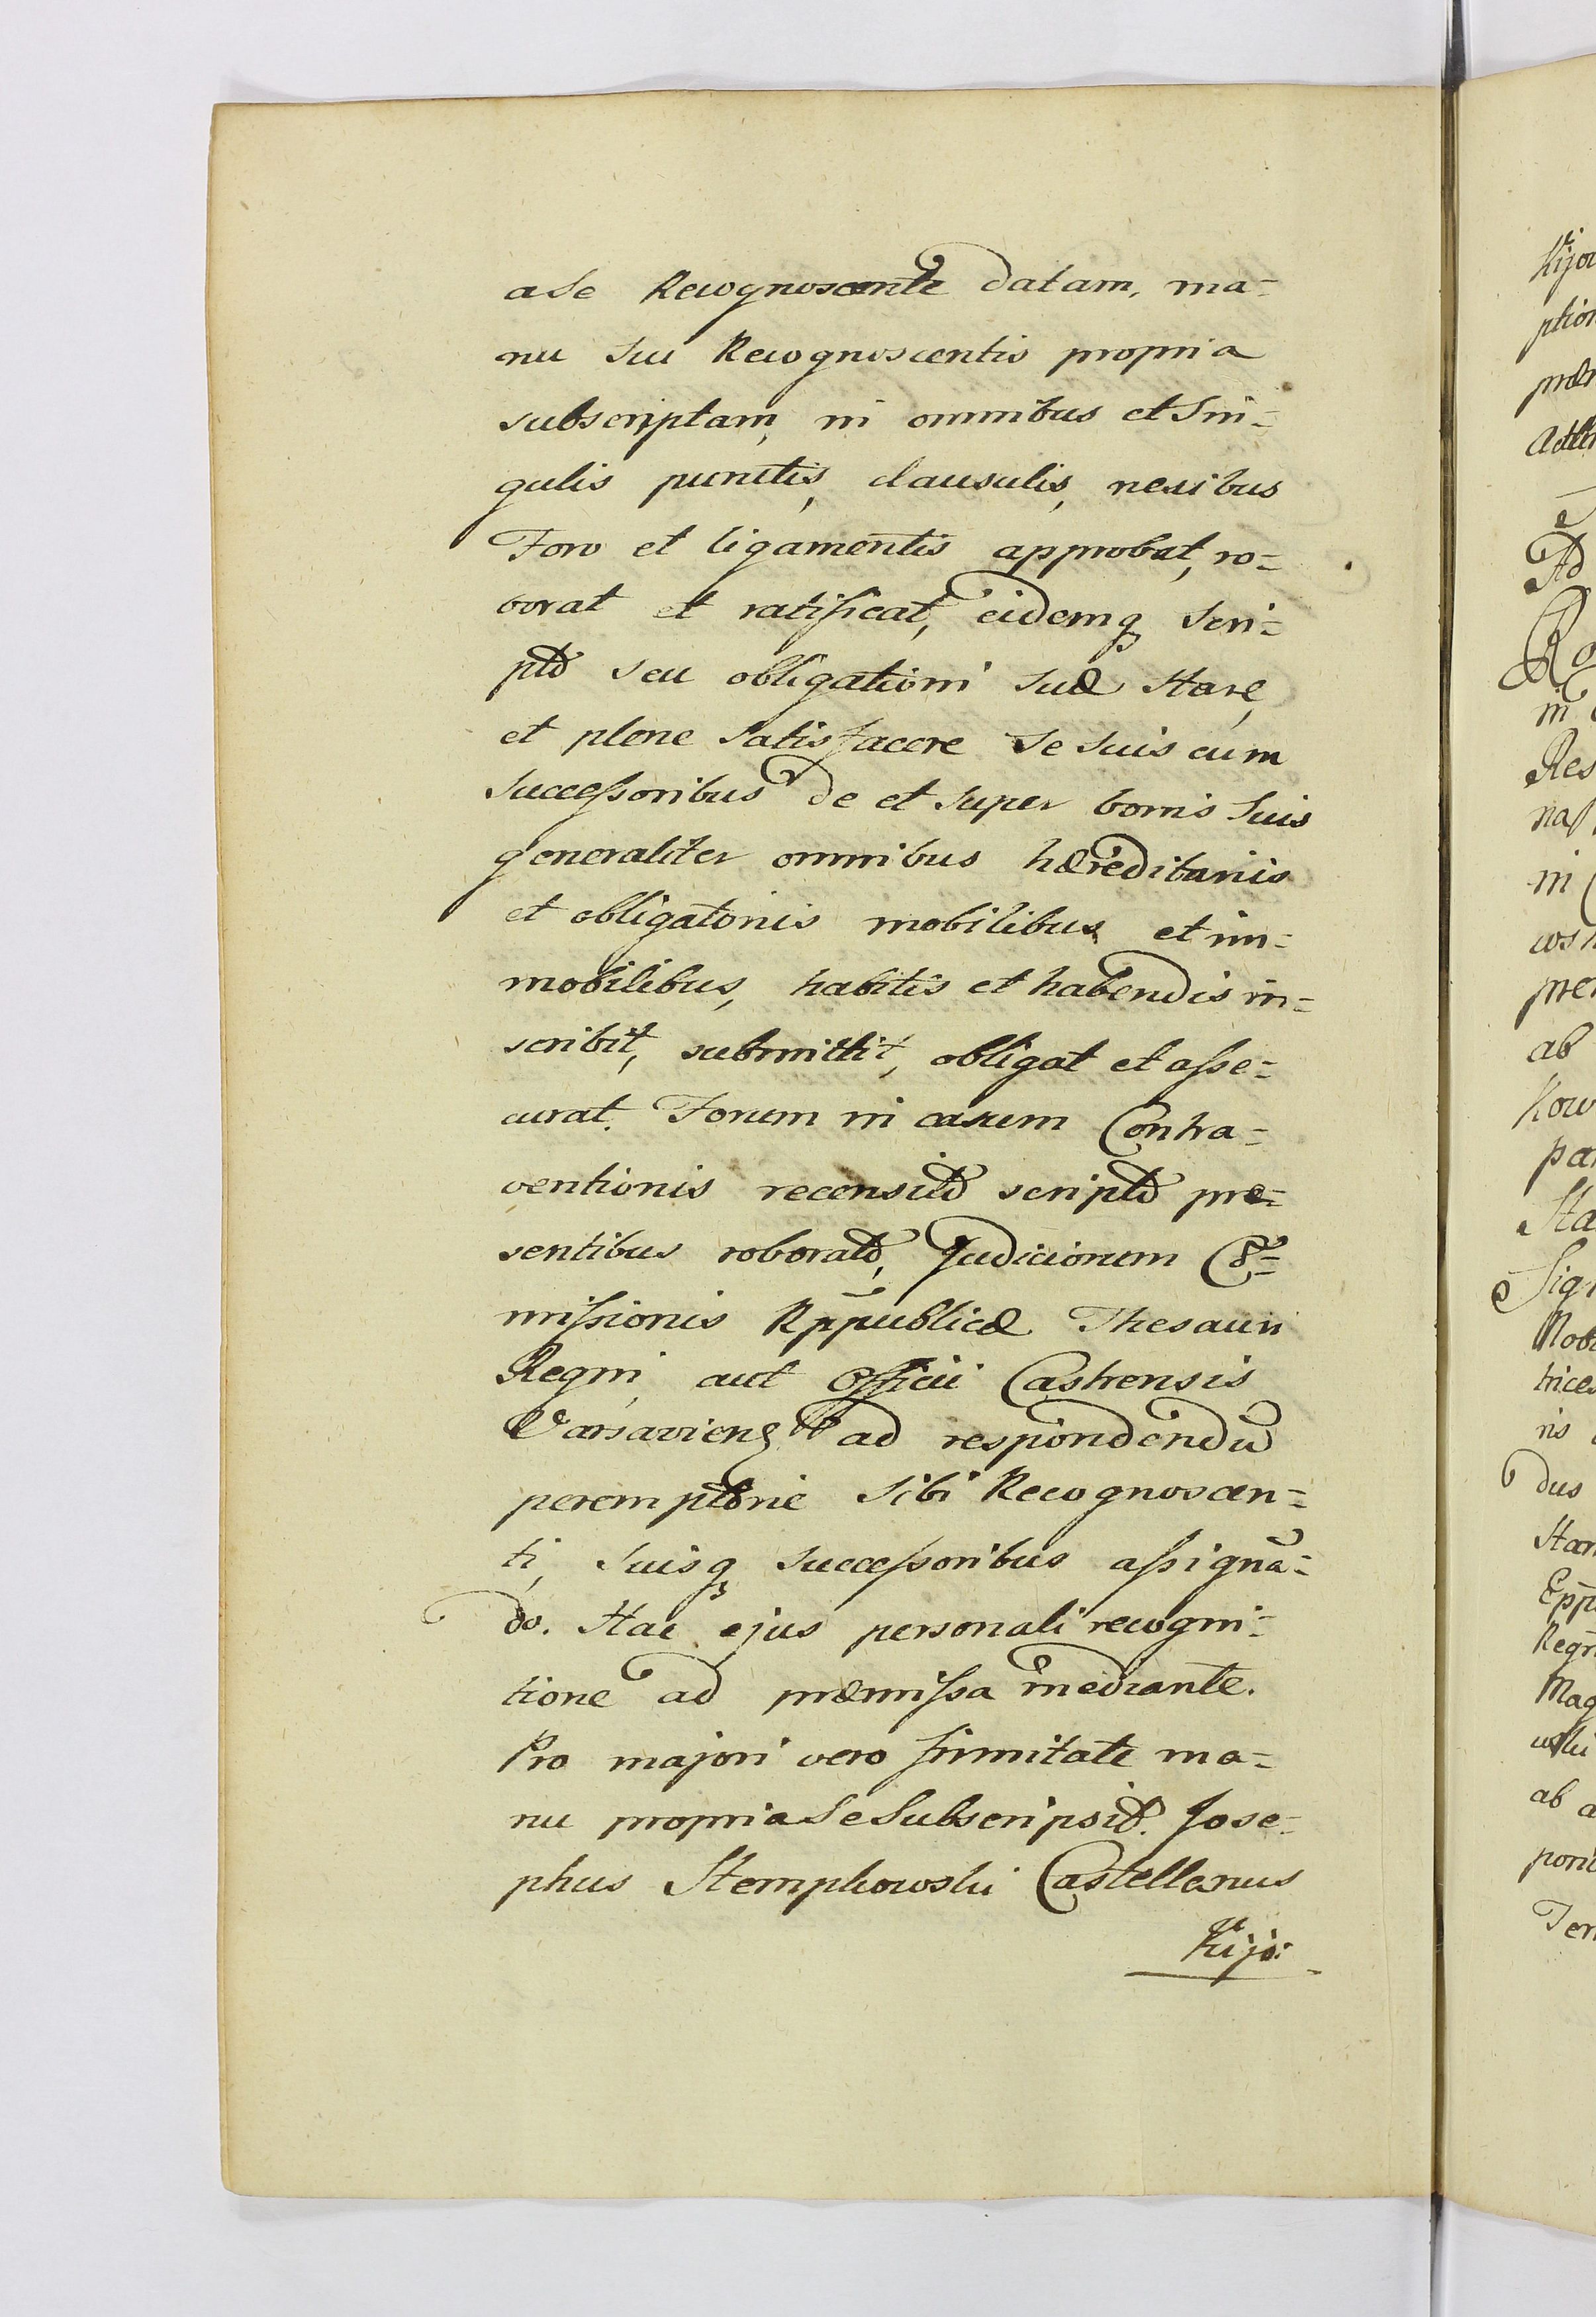 a se Recognoscente datam, ma=
nu sui Recognoscentis propria
subscriptam, in omnibus et Sin=
gulis punctis, clausulis, nexibus
Foro et ligamentis approbat, ro=
borat et ratificat, eidemq scri=
pto seu obligationi suæ stare,
et plene Satisfacere se suis cum
Successoribus de et super bonis Suis
generaliter omnibus hæreditariis
et obligatoriis mobilibus et im=
mobilibus, habitis et habendis in=
scribit, submittit, obligat et asse=
curat. Forum in casum Contra=
ventionis recensito scripto præ=
sentibus roborato, Judiciorum Co=
missionis Rppublicæ Thesauri
Regni, aut Officii Castrensis
Varsaviens ad respondendū
peremptorie sibi Recognoscen=
ti, suisq successoribus assignā=
do. Hac ejus personali recogni=
tione ad præmissa mediante.
Pro majori vero firmitate ma=
nu propria Se Subscripsit. Jose=
phus Stempkowski Castellanus
Kijo:
Kijov
ption
præ
Ad
Ro
in
Res
nas
in
cos
pre
ab
Kow
pa
Sta
Sig
Nob
trice
ris
dus
Stan
Epp
Regn
Mag
wski
ab a
pori
Ter